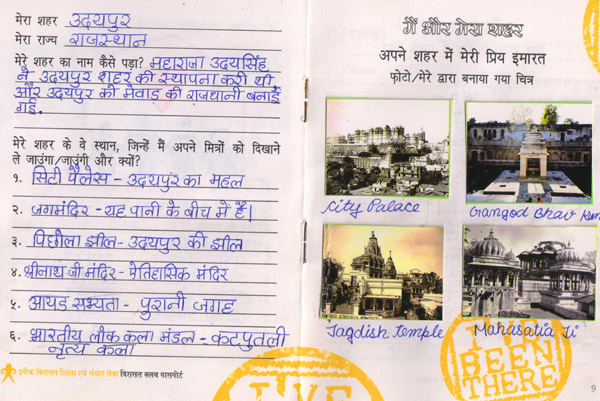 मेरा शहर उदयपुर
मेरा राज्य राजस्थान
मेरे शहर का नाम कैसे पड़ा? महाराजा उदयसिंह
ने उदयपुर शहर की स्थापना करी थी
और उदयपुर को मेवाड़ की राजधानी बनाई
गई.
मेरे शहर के वे स्थान, जिन्हें मैं अपने मित्रों को दिखाने
ले जाउंगा/जाउंगी और क्यों?
१. सिटी पैलेस - उदयपुर का महल
२. जगमंदिर - यह पानी के बीच में है।
३. पिछौला झील - उदयपुर की झील
४. श्रीनाथ जी मंदिर - ऐतिहासिक मंदिर
५. आयड सभ्यता - पुरानी जगह
६. भारतीय लोक कला मंडल - कटपुतली
नृत्य कला
इन्टैक विरासत शिक्षा एवं संचार सेवा विरासत क्लब पासपोर्ट
I'VE
मैं और मेरा शहर
अपने शहर में मेरी प्रिय इमारत
फोटो/मेरे द्वारा बनाया गया चित्र
City Palace
Gangod Bhav Kun
Jagdish temple
Mahasatia Ji
BEEN
THERE
9